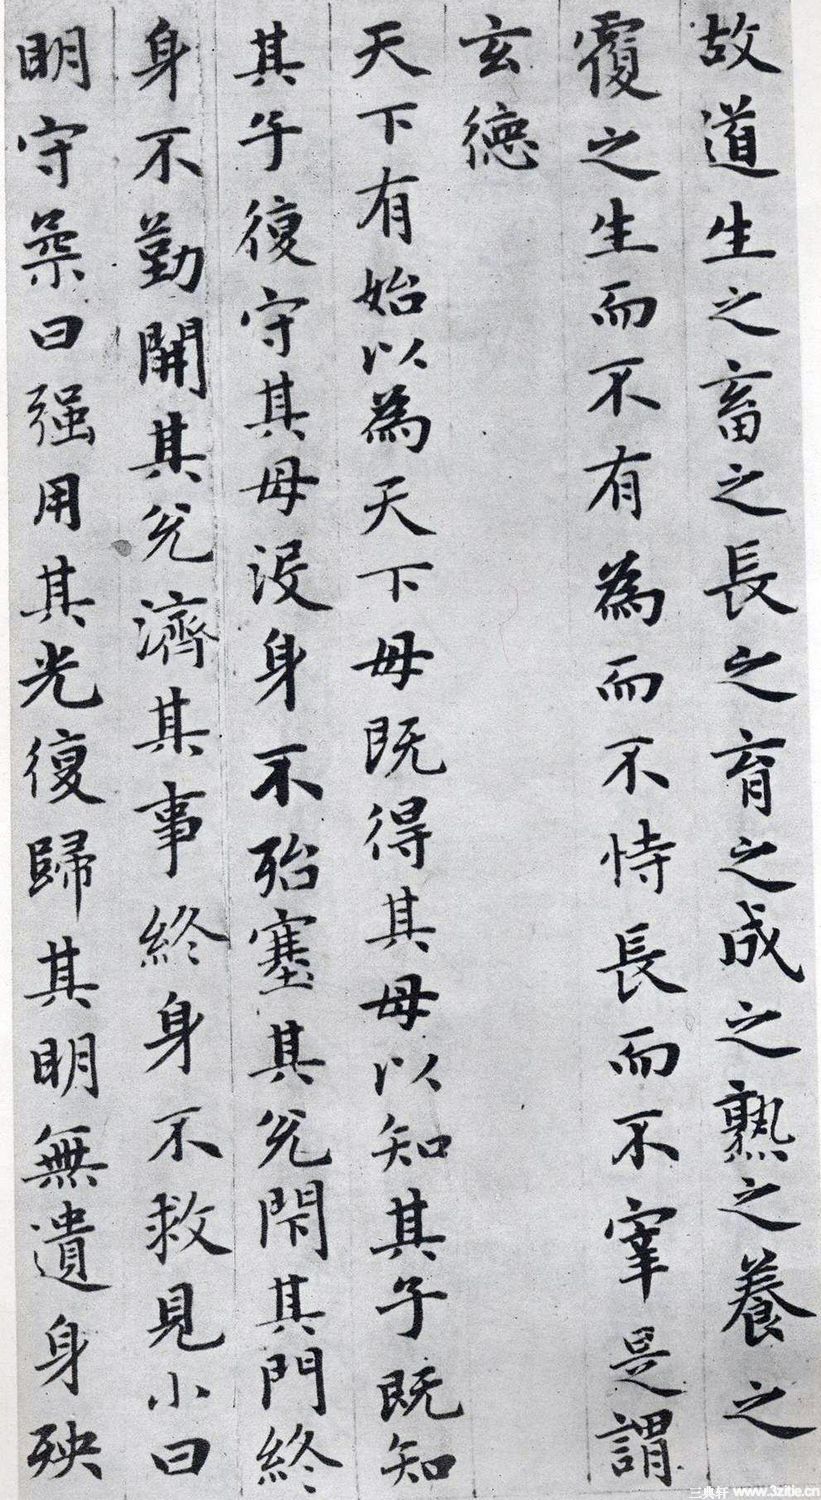 故道生之畜之長之育之成之熟之養之
覆之生而不有為而不恃長而不宰是謂
玄德
天下有始以為天下母既得其母以知其子既知
其子復守其母没身不殆塞其兌閇其門終
身不勤開其兌濟其事終身不救見小曰
明守柔曰强用其光復歸其明無遺身殃
三典轩 www.3zitie.cn